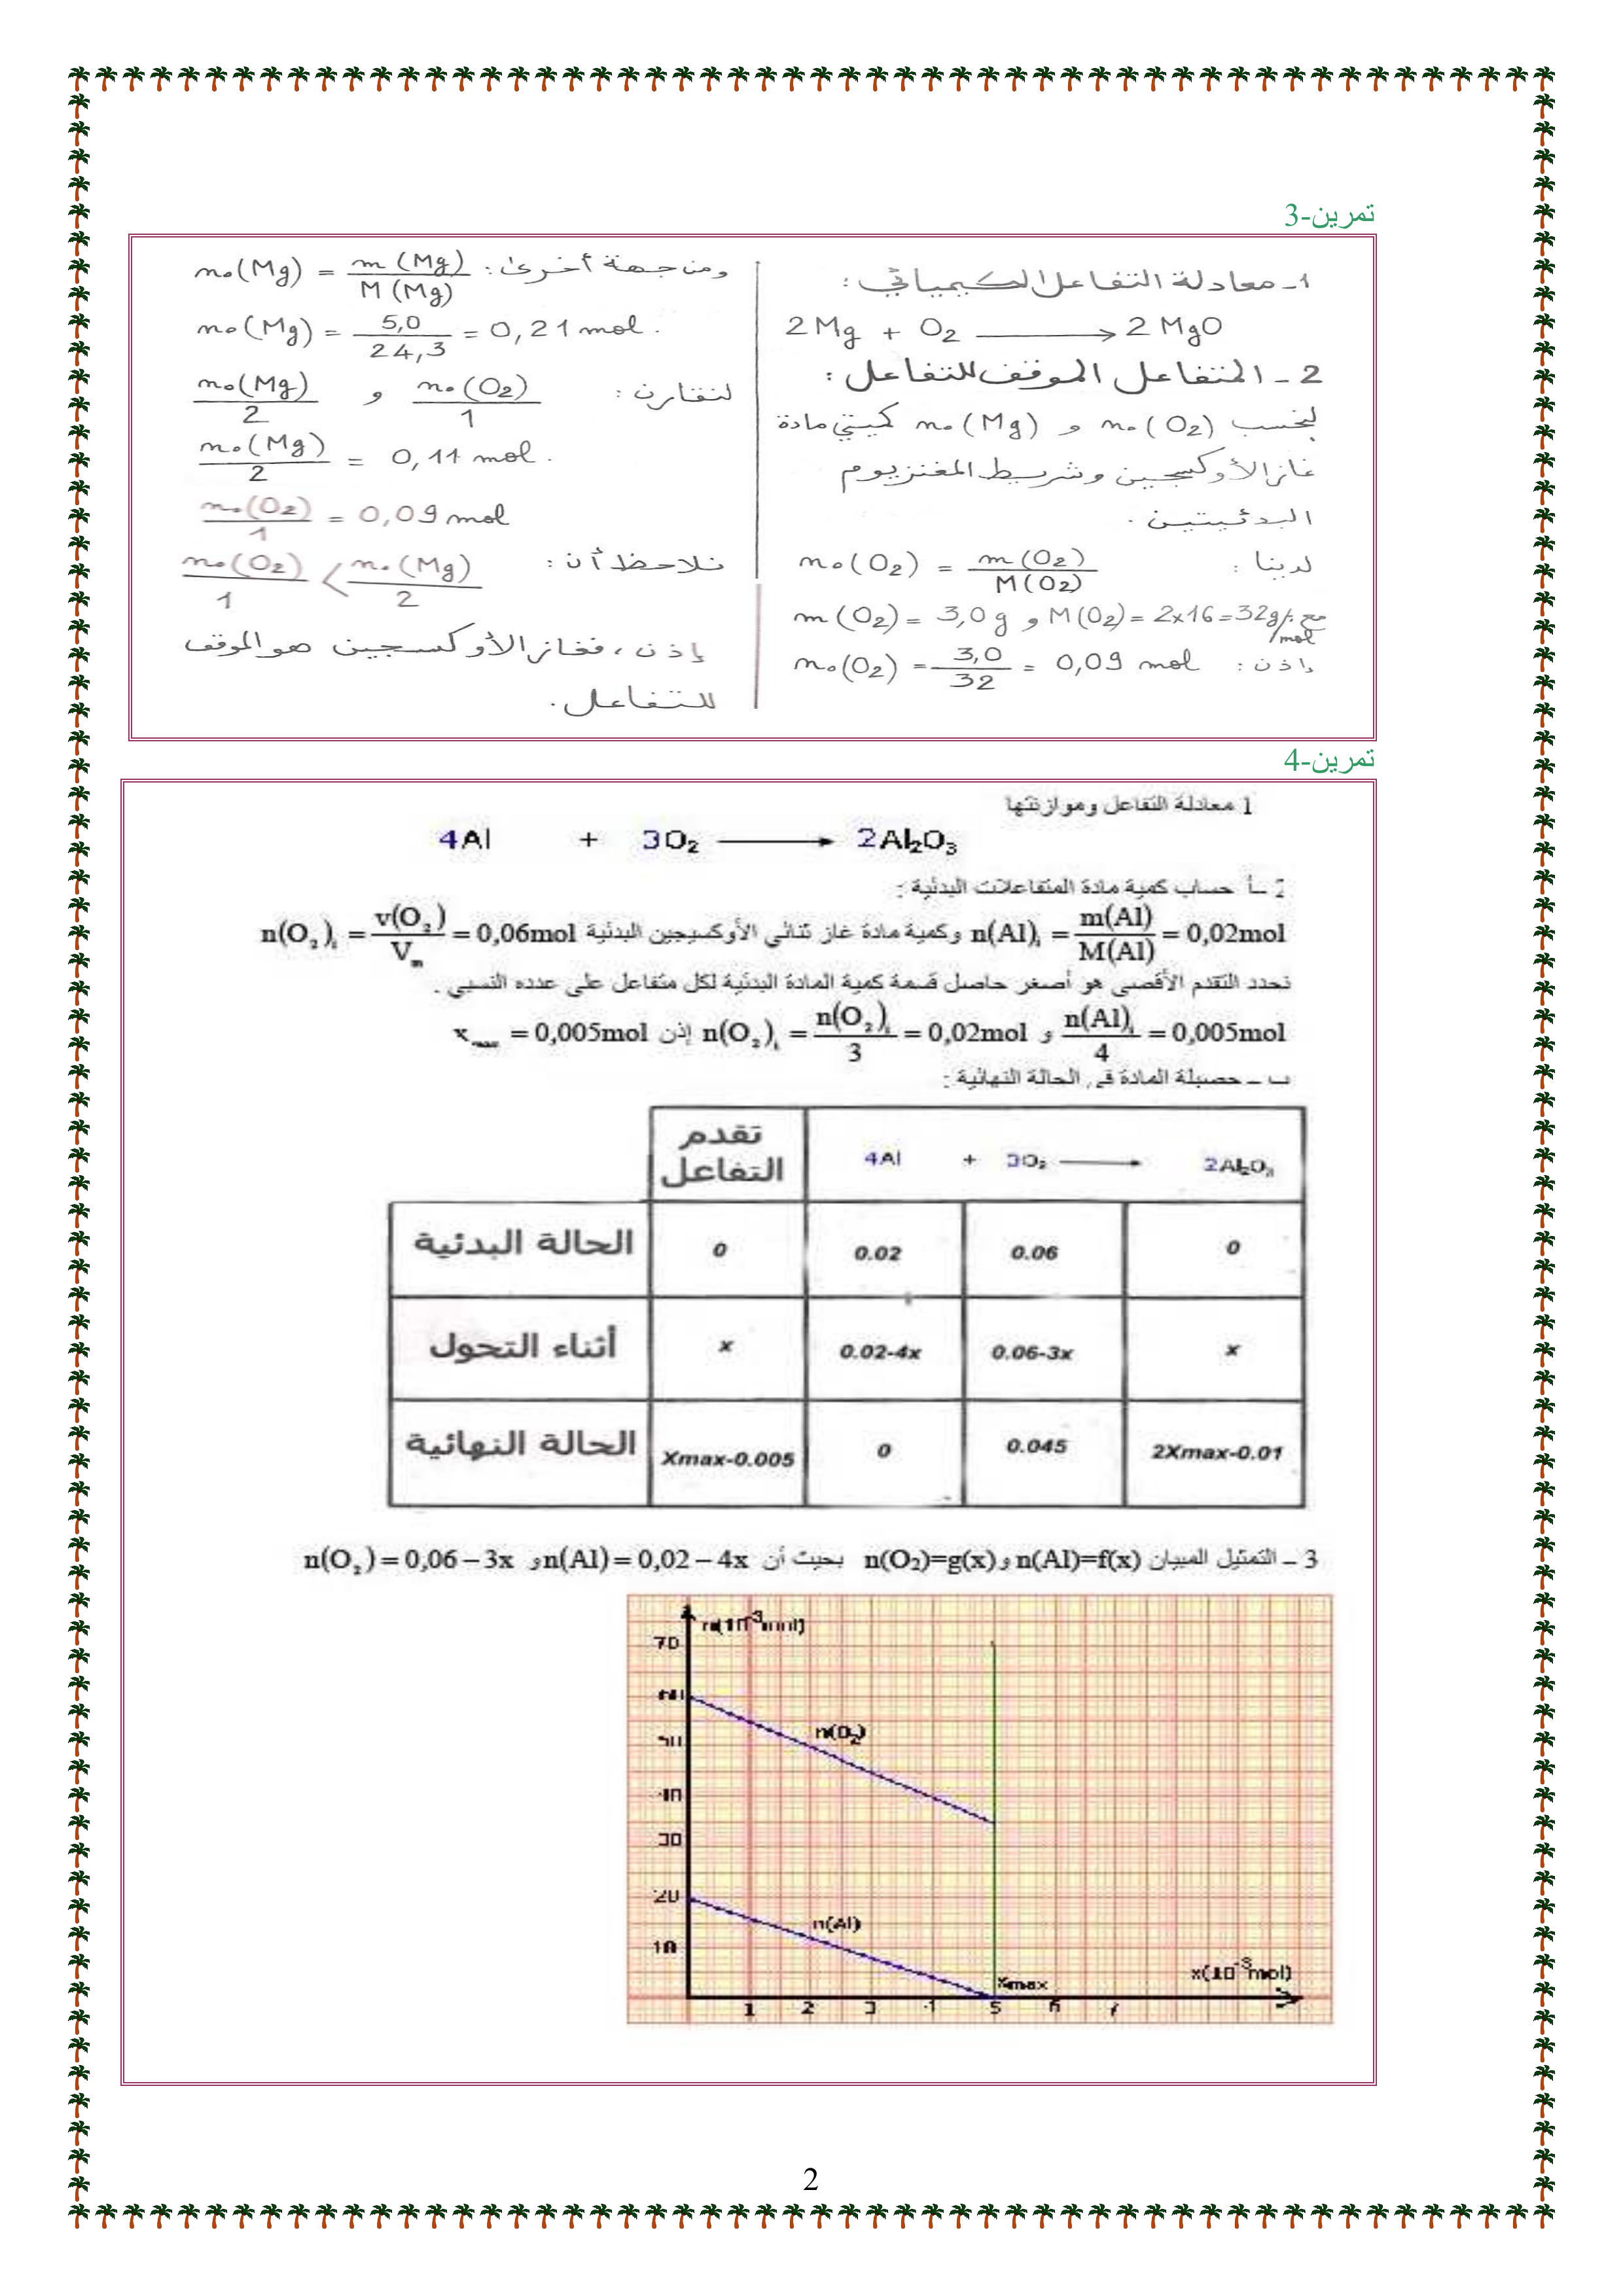 تمرين-3
1- معادلة التفاعل الكيميائي :
2Mg + O₂ ⟶ 2MgO
2 - المتفاعل الموقف للتفاعل :
لنحسب n₀(O₂) و n₀(Mg) كميتي مادة
غاز الأوكسجين وشريط المغنزيوم
البدئيتين .
لدينا : n₀(O₂) = m(O₂)/M(O₂)
مع M(O₂) = 2x16 = 32g/mol و m(O₂) = 3,0g
إذن : n₀(O₂) = 3,0/32 = 0,09 mol
ومن جهة أخرى : n₀(Mg) = m(Mg)/M(Mg)
n₀(Mg) = 5,0/24,3 = 0,21 mol .
لنقارن : n₀(O₂)/1 و n₀(Mg)/2
n₀(Mg)/2 = 0,11 mol .
n₀(O₂)/1 = 0,09 mol
نلاحظ أن : n₀(O₂)/1 < n₀(Mg)/2
إذن ، فغاز الأوكسجين هو الموقف
للتفاعل .
تمرين-4
1 معادلة التفاعل وموازنتها
4Al + 3O₂ ⟶ 2Al₂O₃
2 ـ أ حساب كمية مادة المتفاعلات البدئية :
n(Al)ᵢ = m(Al)/M(Al) = 0,02mol وكمية مادة غاز ثنائي الأوكسيجين البدئية n(O₂)ᵢ = v(O₂)/Vₘ = 0,06mol
نحدد التقدم الأقصى هو أصغر حاصل قسمة كمية المادة البدئية لكل متفاعل على عدده النسبي .
n(Al)ᵢ/4 = 0,005mol و n(O₂)ᵢ = n(O₂)ᵢ/3 = 0,02mol إذن xₘₐₓ = 0,005mol
ب ـ حصيلة المادة في الحالة النهائية :
تقدم التفاعل 4Al + 3O₂ ⟶ 2Al₂O₃
الحالة البدئية 0 0.02 0.06 0
أثناء التحول x 0.02-4x 0.06-3x x
الحالة النهائية Xmax-0.005 0 0.045 2Xmax-0.01
3 ـ التمثيل المبيان n(Al)=f(x) و n(O₂)=g(x) بحيث أن n(Al) = 0,02 – 4x و n(O₂) = 0,06 – 3x
n(10⁻³mol)
70
60
50
40
30
20
10
n(O₂)
n(Al)
xmax
x(10⁻³mol)
1 2 3 4 5 6 7
2